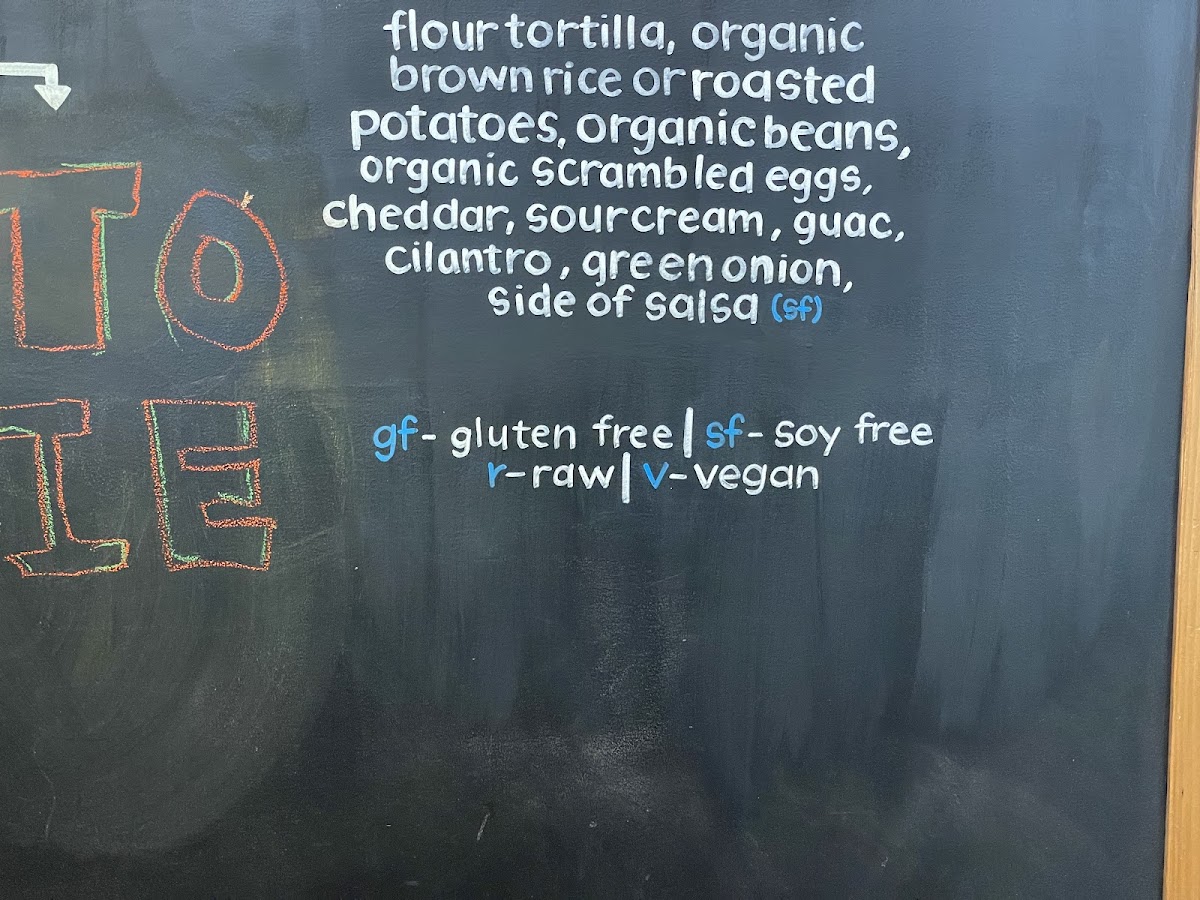 flour tortilla, organic
brown rice or roasted
potatoes, organic beans,
organic scrambled eggs,
cheddar, sour cream, guac,
cilantro, green onion,
side of salsa (sf)
gf- gluten free | sf- soy free
r-raw | v-vegan
TO
IE